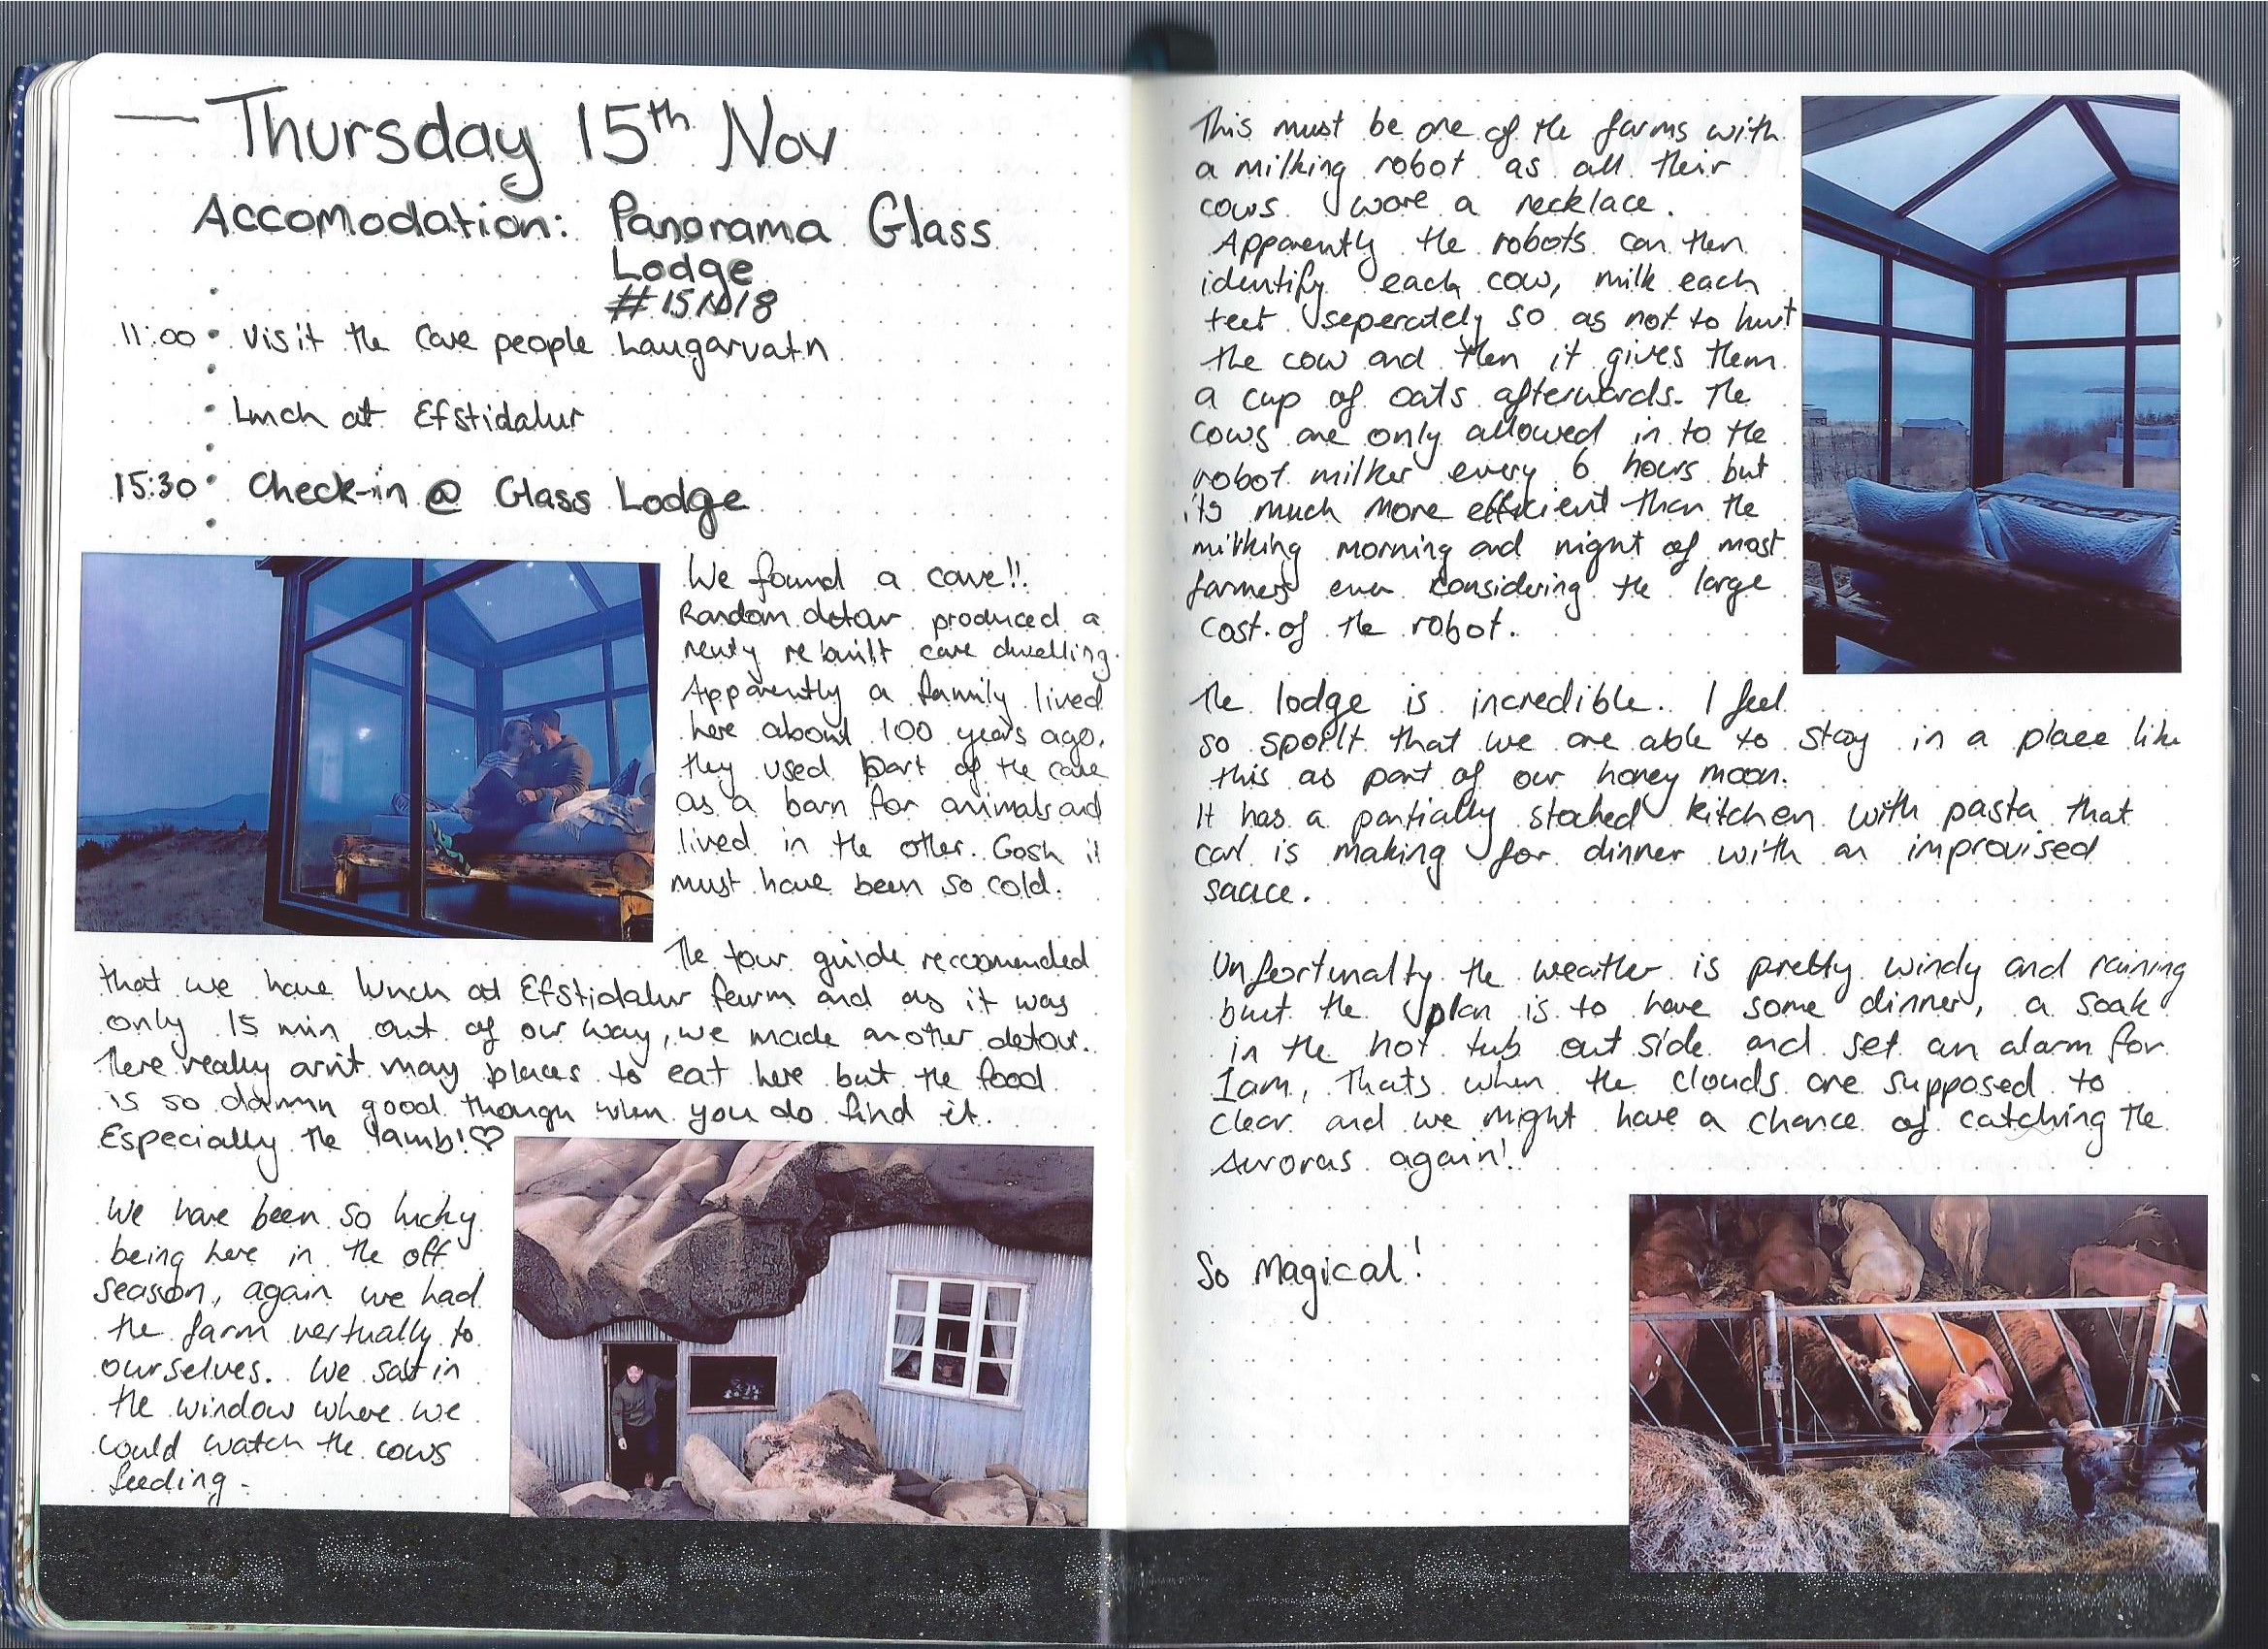 Thursday 15th Nov
Accomodation: Panorama Glass
Lodge
#15N18
11:00 Visit the Cave people Laugarvatn
Lunch at Efstidalur
15:30 Check-in @ Glass Lodge
We found a cave!!
Random detour produced a
newly rebuilt cave dwelling.
Apparently a family lived
here about 100 years ago,
they used part of the cave
as a barn for animals and
lived in the other. Gosh it
must have been so cold.
The tour guide reccomended
that we have lunch at Efstidalur farm and as it was
only 15 min out of our way, we made another detour.
There really arn't may places to eat here but the food
is so damn good though when you do find it.
Especially the lamb!♡
We have been so lucky
being here in the off
season, again we had
the farm vertually to
ourselves. We sat in
the window where we
could watch the cows
feeding.
This must be one of the farms with
a milking robot as all their
cows wore a necklace.
Apparently the robots can then
identify each cow, milk each
teet seperately so as not to hurt
the cow and then it gives them
a cup of oats afterwards. The
cows are only allowed in to the
robot milker every 6 hours but
its much more efficient than the
milking morning and night of most
farmers even considering the large
cost of the robot.
The lodge is incredible. I feel
so spoilt that we are able to stay in a place like
this as part of our honey moon.
It has a partially stocked kitchen with pasta that
Carl is making for dinner with an improvised
sauce.
Unfortunalty the weather is pretty windy and raining
but the plan is to have some dinner, a soak
in the hot tub out side and set an alarm for
1am, thats when the clouds are supposed to
clear and we might have a chance of catching the
Auroras again!
So Magical!